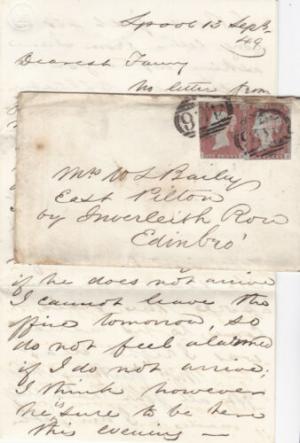 Lpool 13 Septr
/49
Dearest Fanny
No letter from
Mrs W S Baily
East Pilton
by Inverleith Row
Edinbro'
if he does not arrive
I cannot leave the
office tomorrow, so
do not feel alarmed
if I do not arrive;
I think however
he is sure to be here
this evening —